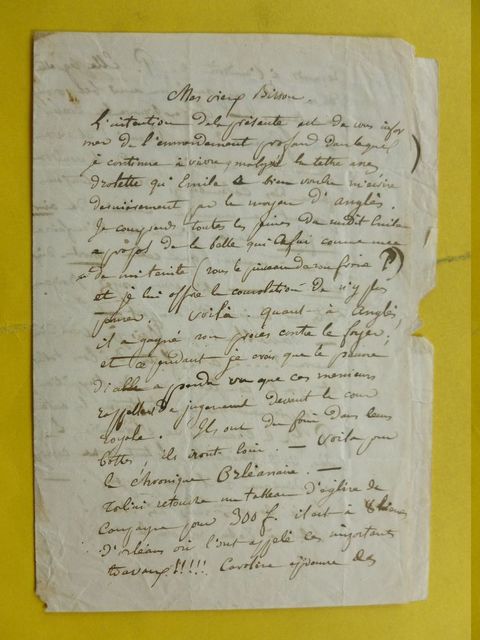 Mes vieux Bisson.
L'intention de la présente est de vous infor
mer de l'emmerdement profond dans lequel
je continue à vivre, malgré la lettre assez
drolette qu'Emile a bien voulu m'écrire
dernièrement par le moyen d'Anglès.
Je comprends toutes les peines du susdit Emile
a propos de la belle qui a fui comme une
de mi teinte (sous le pinceau de
et je lui offre la consolation de n'y plus
penser. Voilà. quant à Anglès,
il a gagné son procès contre le foyer,
et cependant je crois que le pauvre
diable a perdu vu que ces messieurs
rappellent du jugement devant la cour
royale. Ils ont du foin dans leurs
bottes. ils iront loin. — Voila pour
la chronique Orléanaise. —
retourne un tableau d'église de
campagne pour 300 f. il est à
d'orléans où l'ont appelé ces importants
travaux!!!!! Caroline éprouve des